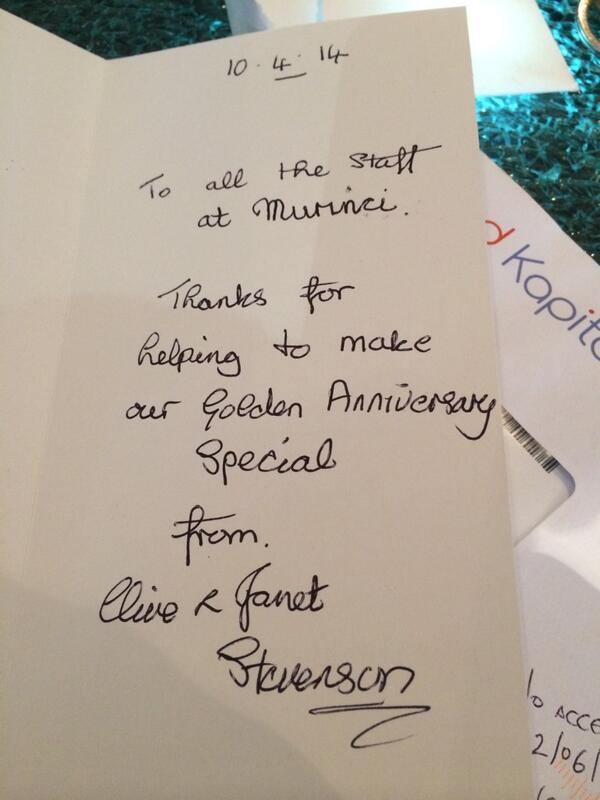 10.4.14
To all the Staff
at Murinci.
Thanks for
helping to make
our Golden Anniversary
Special
from.
Clive & Janet
Stevenson
Kapit
ACCE
2/06/